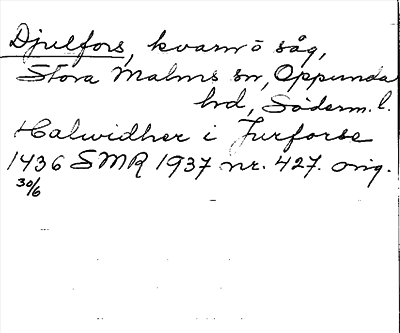 Djulfors, kvarn o såg,
Stora Malms sn, Oppunda
hd, Söderm. l.
Halwidher i Jurforse
1436 SMR 1937 nr. 427. orig.
30/6